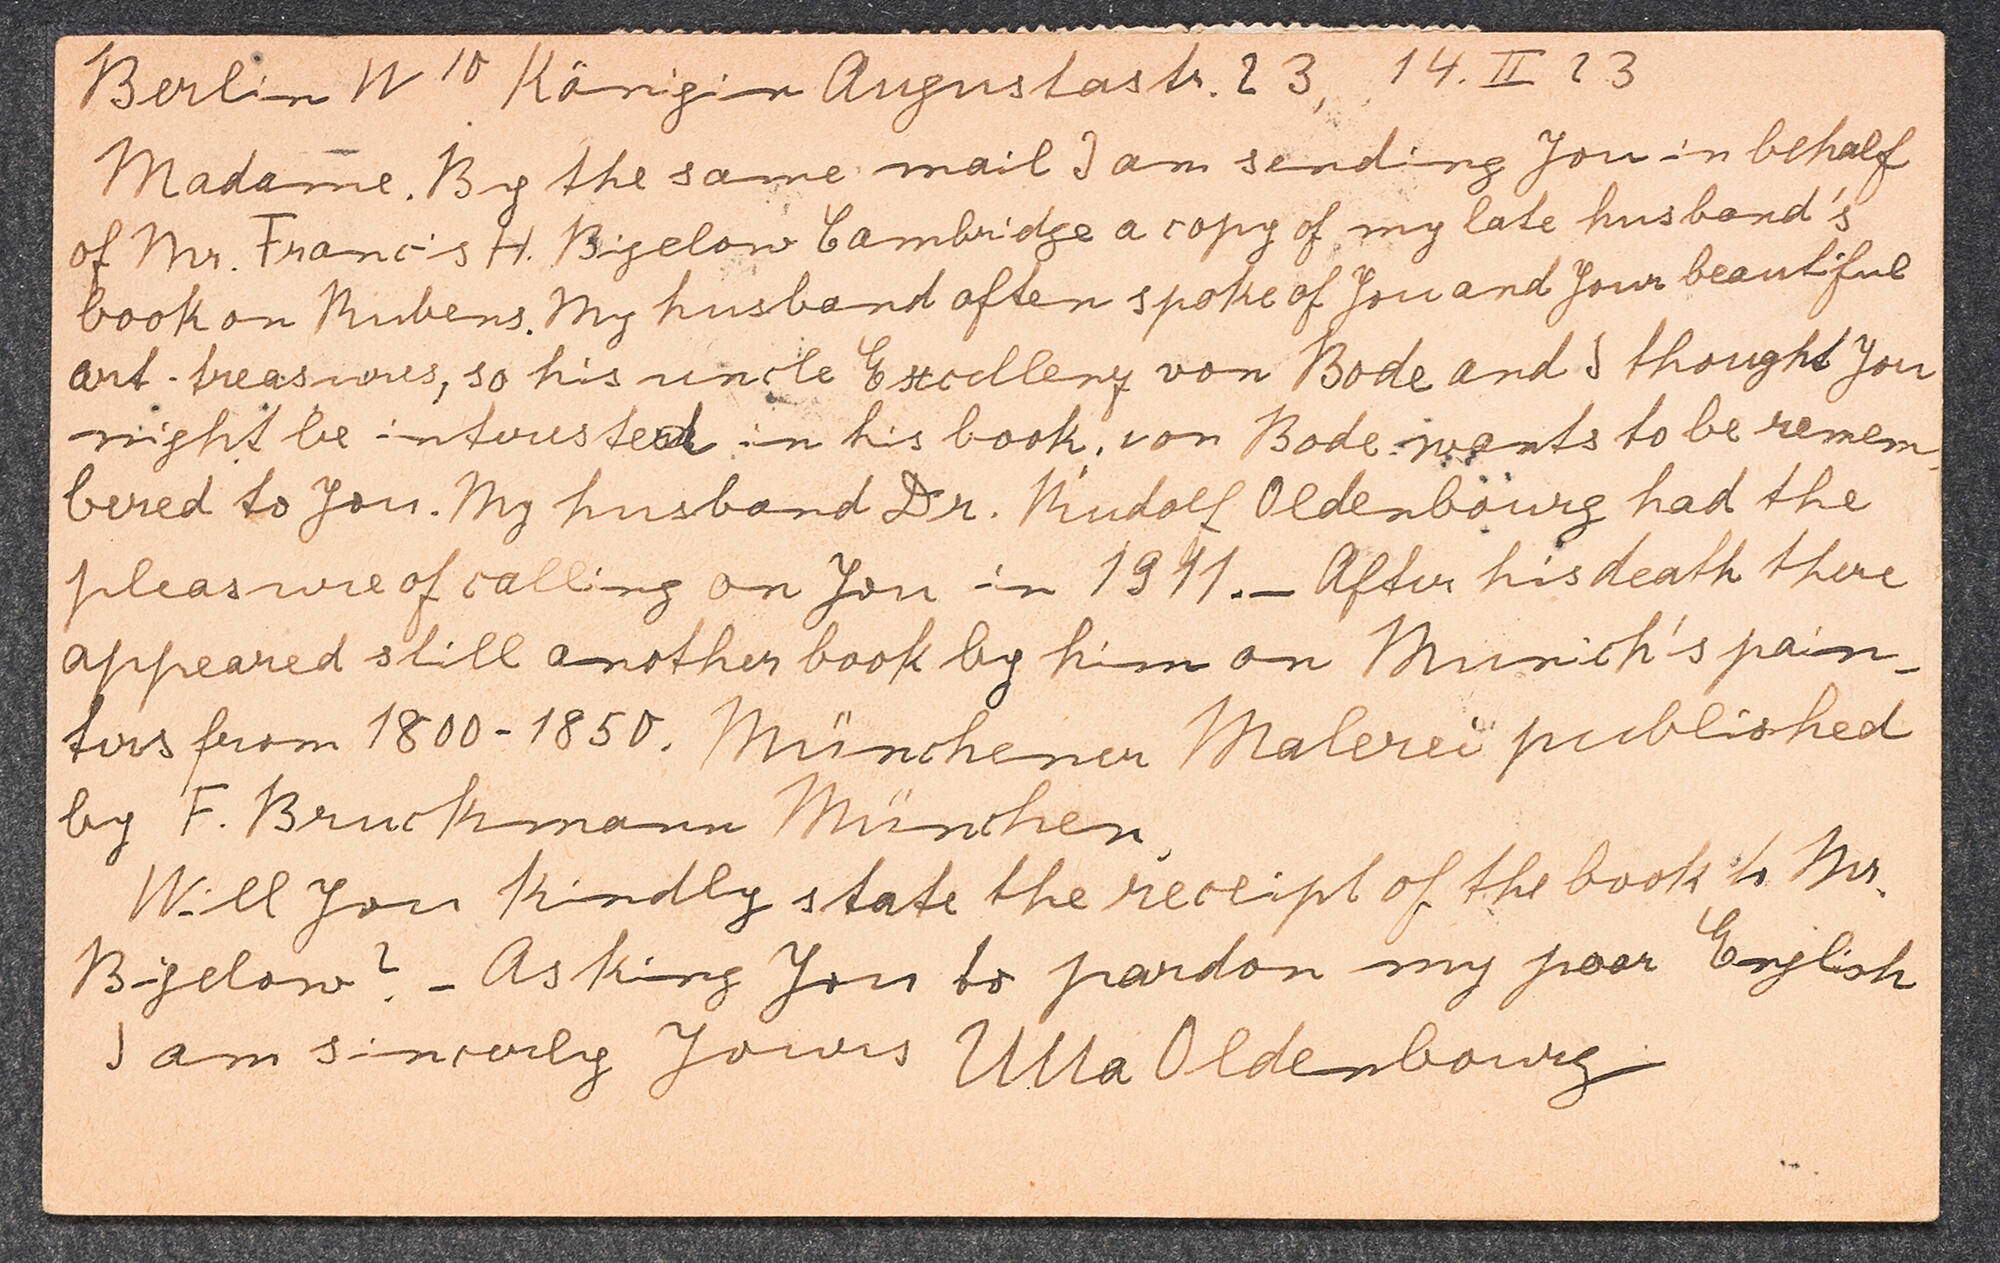 Berlin W 10 Königin Augustastr. 23, 14. II 23
Madame. By the same mail I am sending You in behalf
of Mr. Francis H. Bigelow Cambridge a copy of my late husband's
book on Rubens. My husband often spoke of You and Your beautiful
art-treasures, so his uncle Excelleny von Bode and I thought You
might be interested in his book. von Bode wants to be remem-
bered to You. My husband Dr. Rudolf Oldenbourg had the
pleasure of calling on You in 1911. — After his death there
appeared still another book by him on Munich's pain-
ters from 1800-1850. Münchener Malerei published
by F. Bruckmann München.
Will You kindly state the receipt of the book to Mr.
Bigelow? — Asking You to pardon my poor English
I am sincerely Yours Ulla Oldenbourg